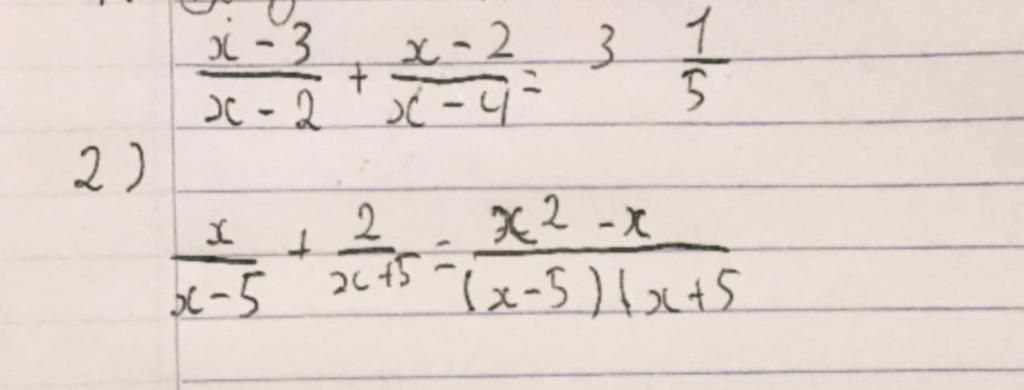 x - 3 / x - 2 + x - 2 / x - 4 = 3 1/5
2)
x / x - 5 + 2 / x + 5 = x² - x / (x - 5)(x + 5